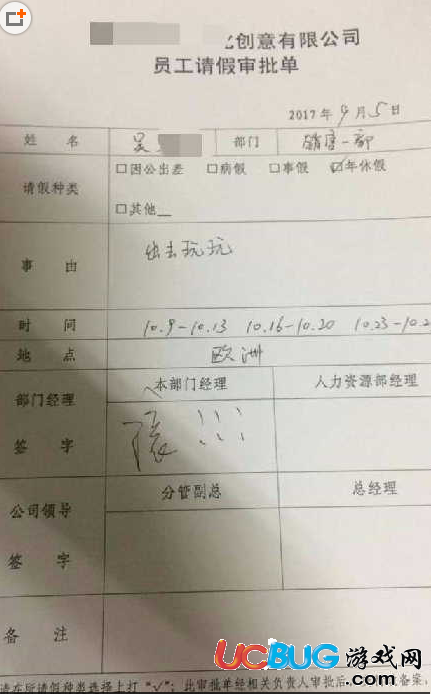 创意有限公司
员工请假审批单
2017年9月5日
姓 名 吴 部门 销售一部
请假种类 □因公出差 □病假 □事假 ☑年休假
□其他__
事 由 出去玩玩
时 间 10.9-10.13 10.16-10.20 10.23-10.2
地 点 欧洲
部门经理 本部门经理 人力资源部经理
签 字
分管副总 总经理
公司领导
签 字
备 注
UCBUG游戏网
请在所请假种类选择上打“√”；此审批单经相关负责人审批后
www.ucbug.com
备案；